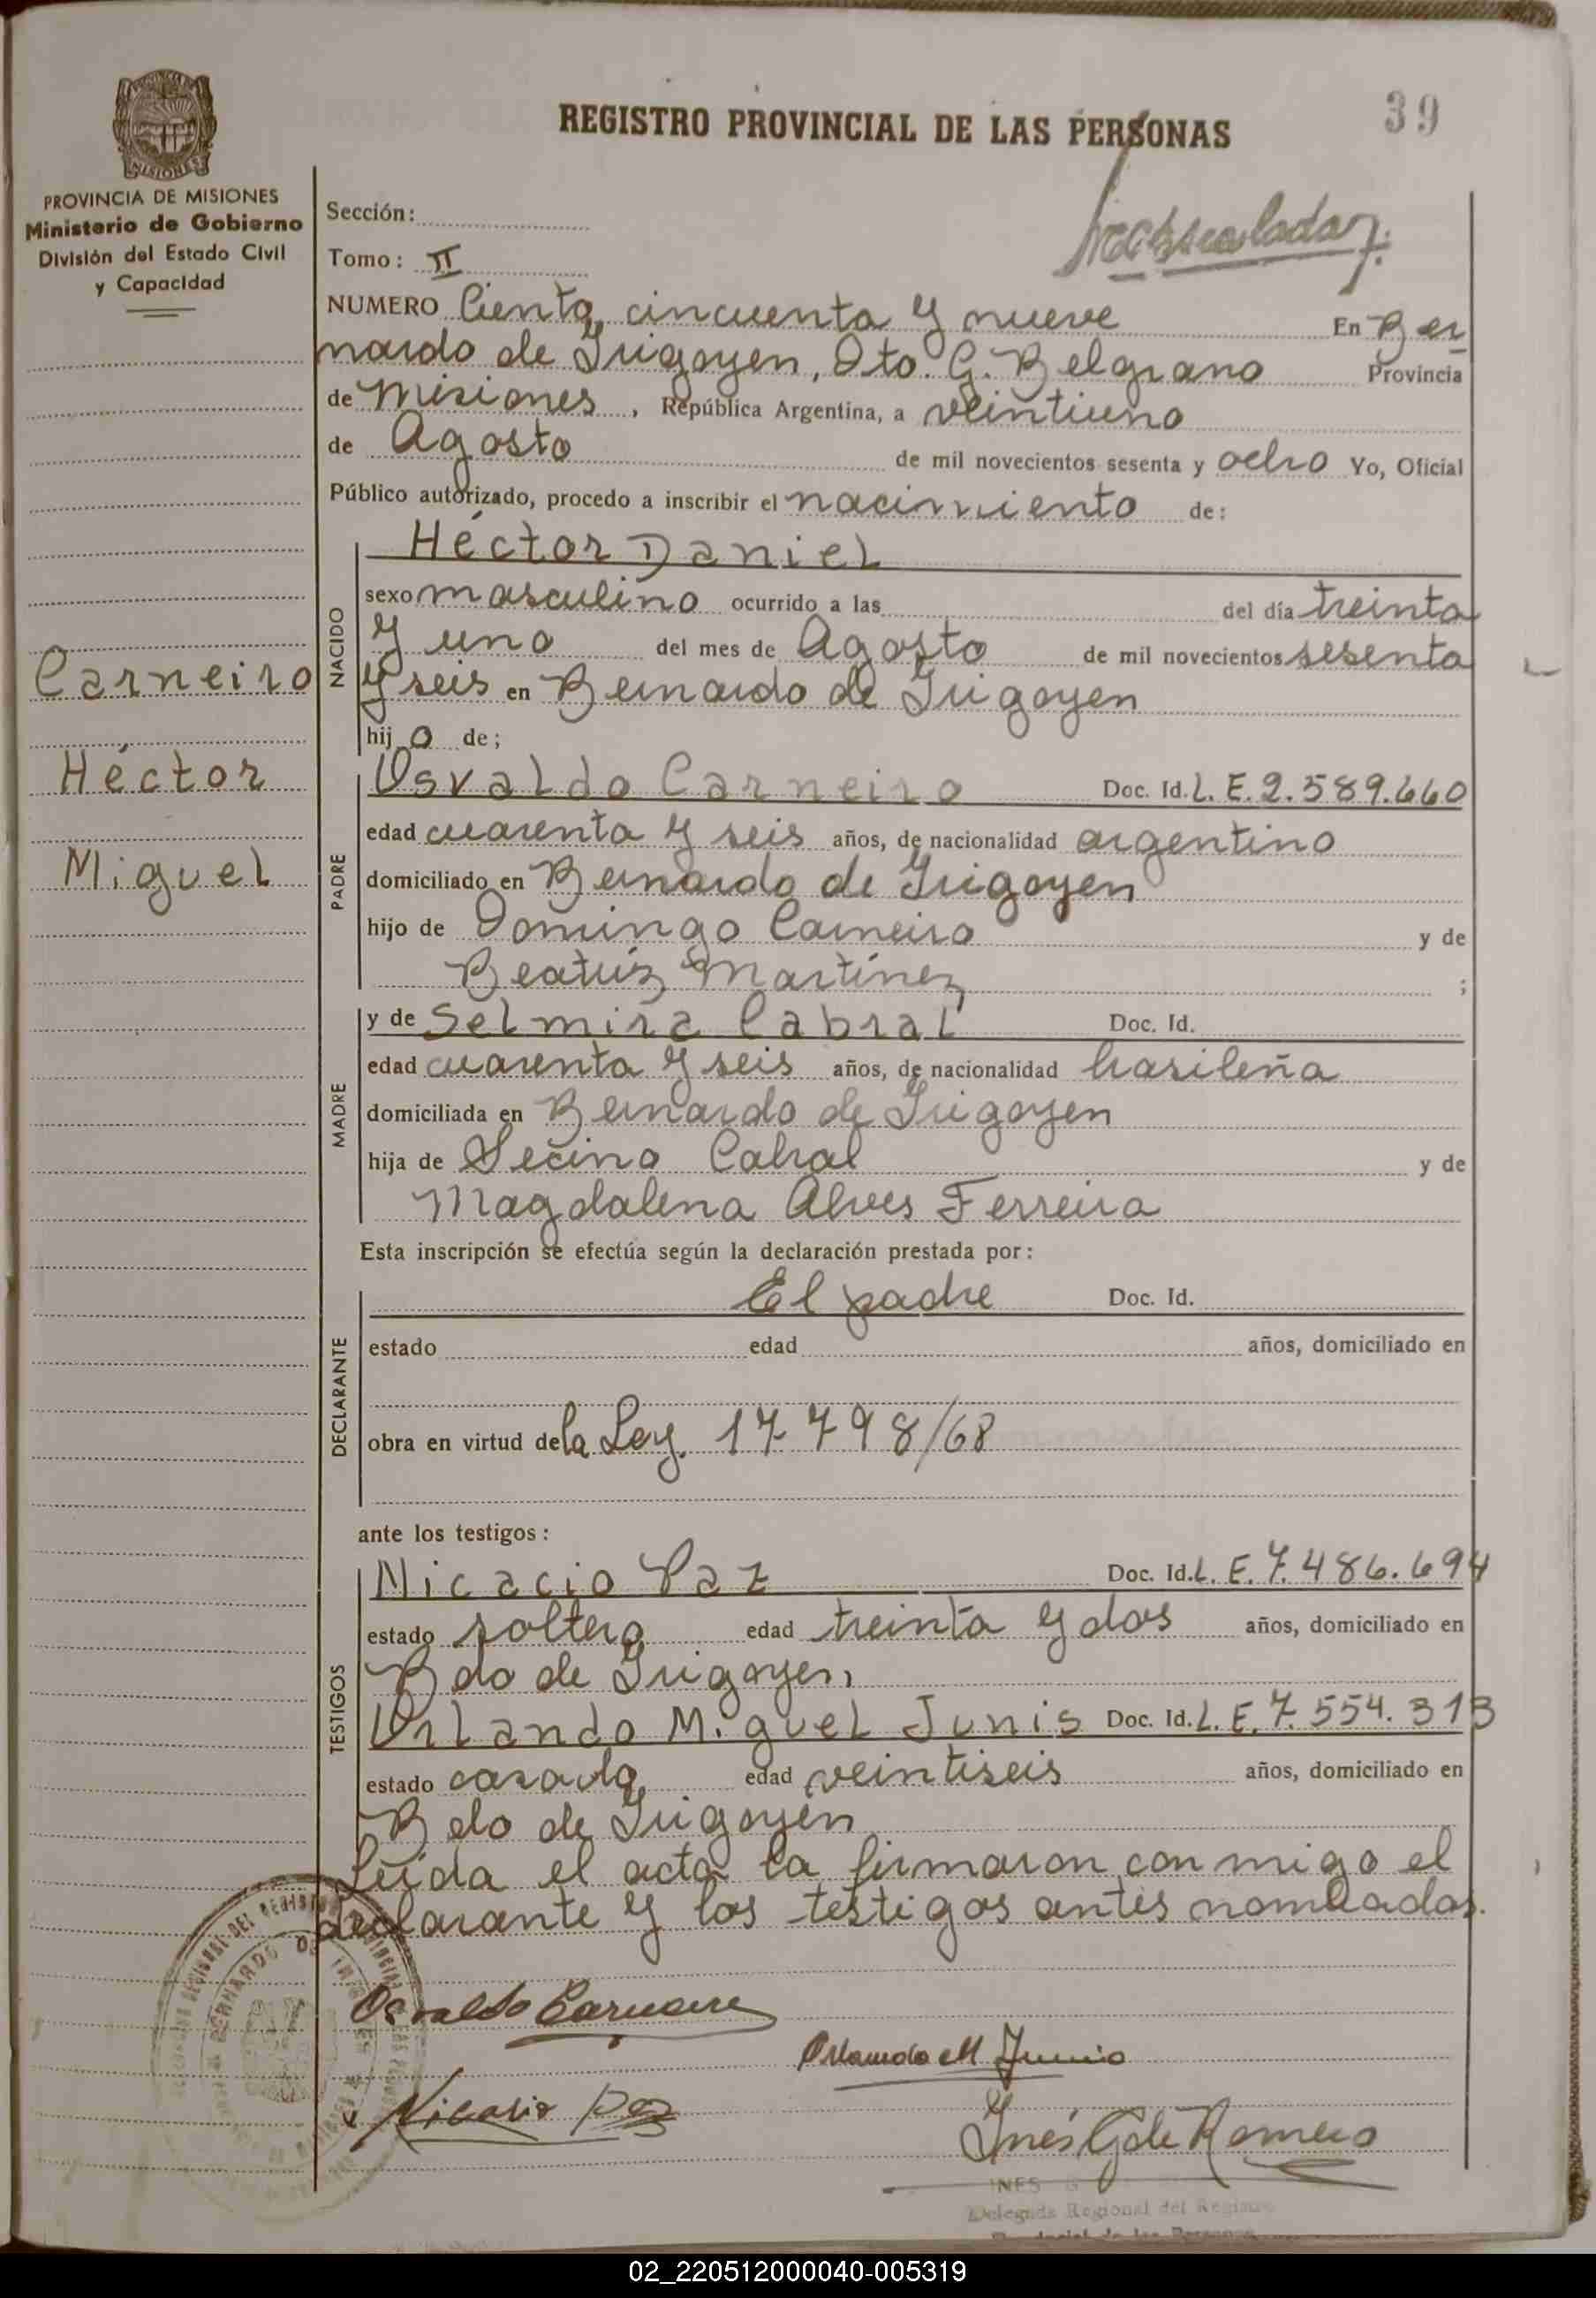 REGISTRO PROVINCIAL DE LAS PERSONAS
39
MISIONES
PROVINCIA DE MISIONES
Ministerio de Gobierno
División del Estado Civil
y Capacidad
Carneiro
Héctor
Miguel
Sección:
Tomo: II
NUMERO Ciento cincuenta y nueve En Ber
nardo de Irigoyen, Dto. G. Belgrano Provincia
de Misiones, República Argentina, a veintiuno
de Agosto de mil novecientos sesenta y ocho Yo, Oficial
Público autorizado, procedo a inscribir el nacimiento de:
NACIDO
Héctor Daniel
sexo masculino ocurrido a las del día treinta
y uno del mes de Agosto de mil novecientos sesenta
y seis en Bernardo de Irigoyen
hijo de;
PADRE
Osvaldo Carneiro Doc. Id. L. E. 2.589.660
edad cuarenta y seis años, de nacionalidad argentino
domiciliado en Bernardo de Irigoyen
hijo de Domingo Carneiro y de
Beatriz Martínez ;
MADRE
y de Selmira Cabral Doc. Id.
edad cuarenta y seis años, de nacionalidad brasileña
domiciliada en Bernardo de Irigoyen
hija de Secino Cabral y de
Magdalena Alves Ferreira
Esta inscripción se efectúa según la declaración prestada por:
DECLARANTE
El padre Doc. Id.
estado edad años, domiciliado en
obra en virtud de la Ley 17.798/68
ante los testigos:
TESTIGOS
Nicacio Paz Doc. Id. L. E. 7.486.694
estado soltero edad treinta y dos años, domiciliado en
Bdo de Irigoyen
Orlando Miguel Junis Doc. Id. L. E. 7.554.313
estado casado edad veintiseis años, domiciliado en
Bdo de Irigoyen
Leída el acta la firmaron conmigo el
declarante y los testigos antes nombrados.
Osvaldo Carneiro
Orlando M Junis
Nicasio Paz
Inés G de Romero
INES G
Delegada Regional del Registro
Provincial de las Personas
02_220512000040-005319